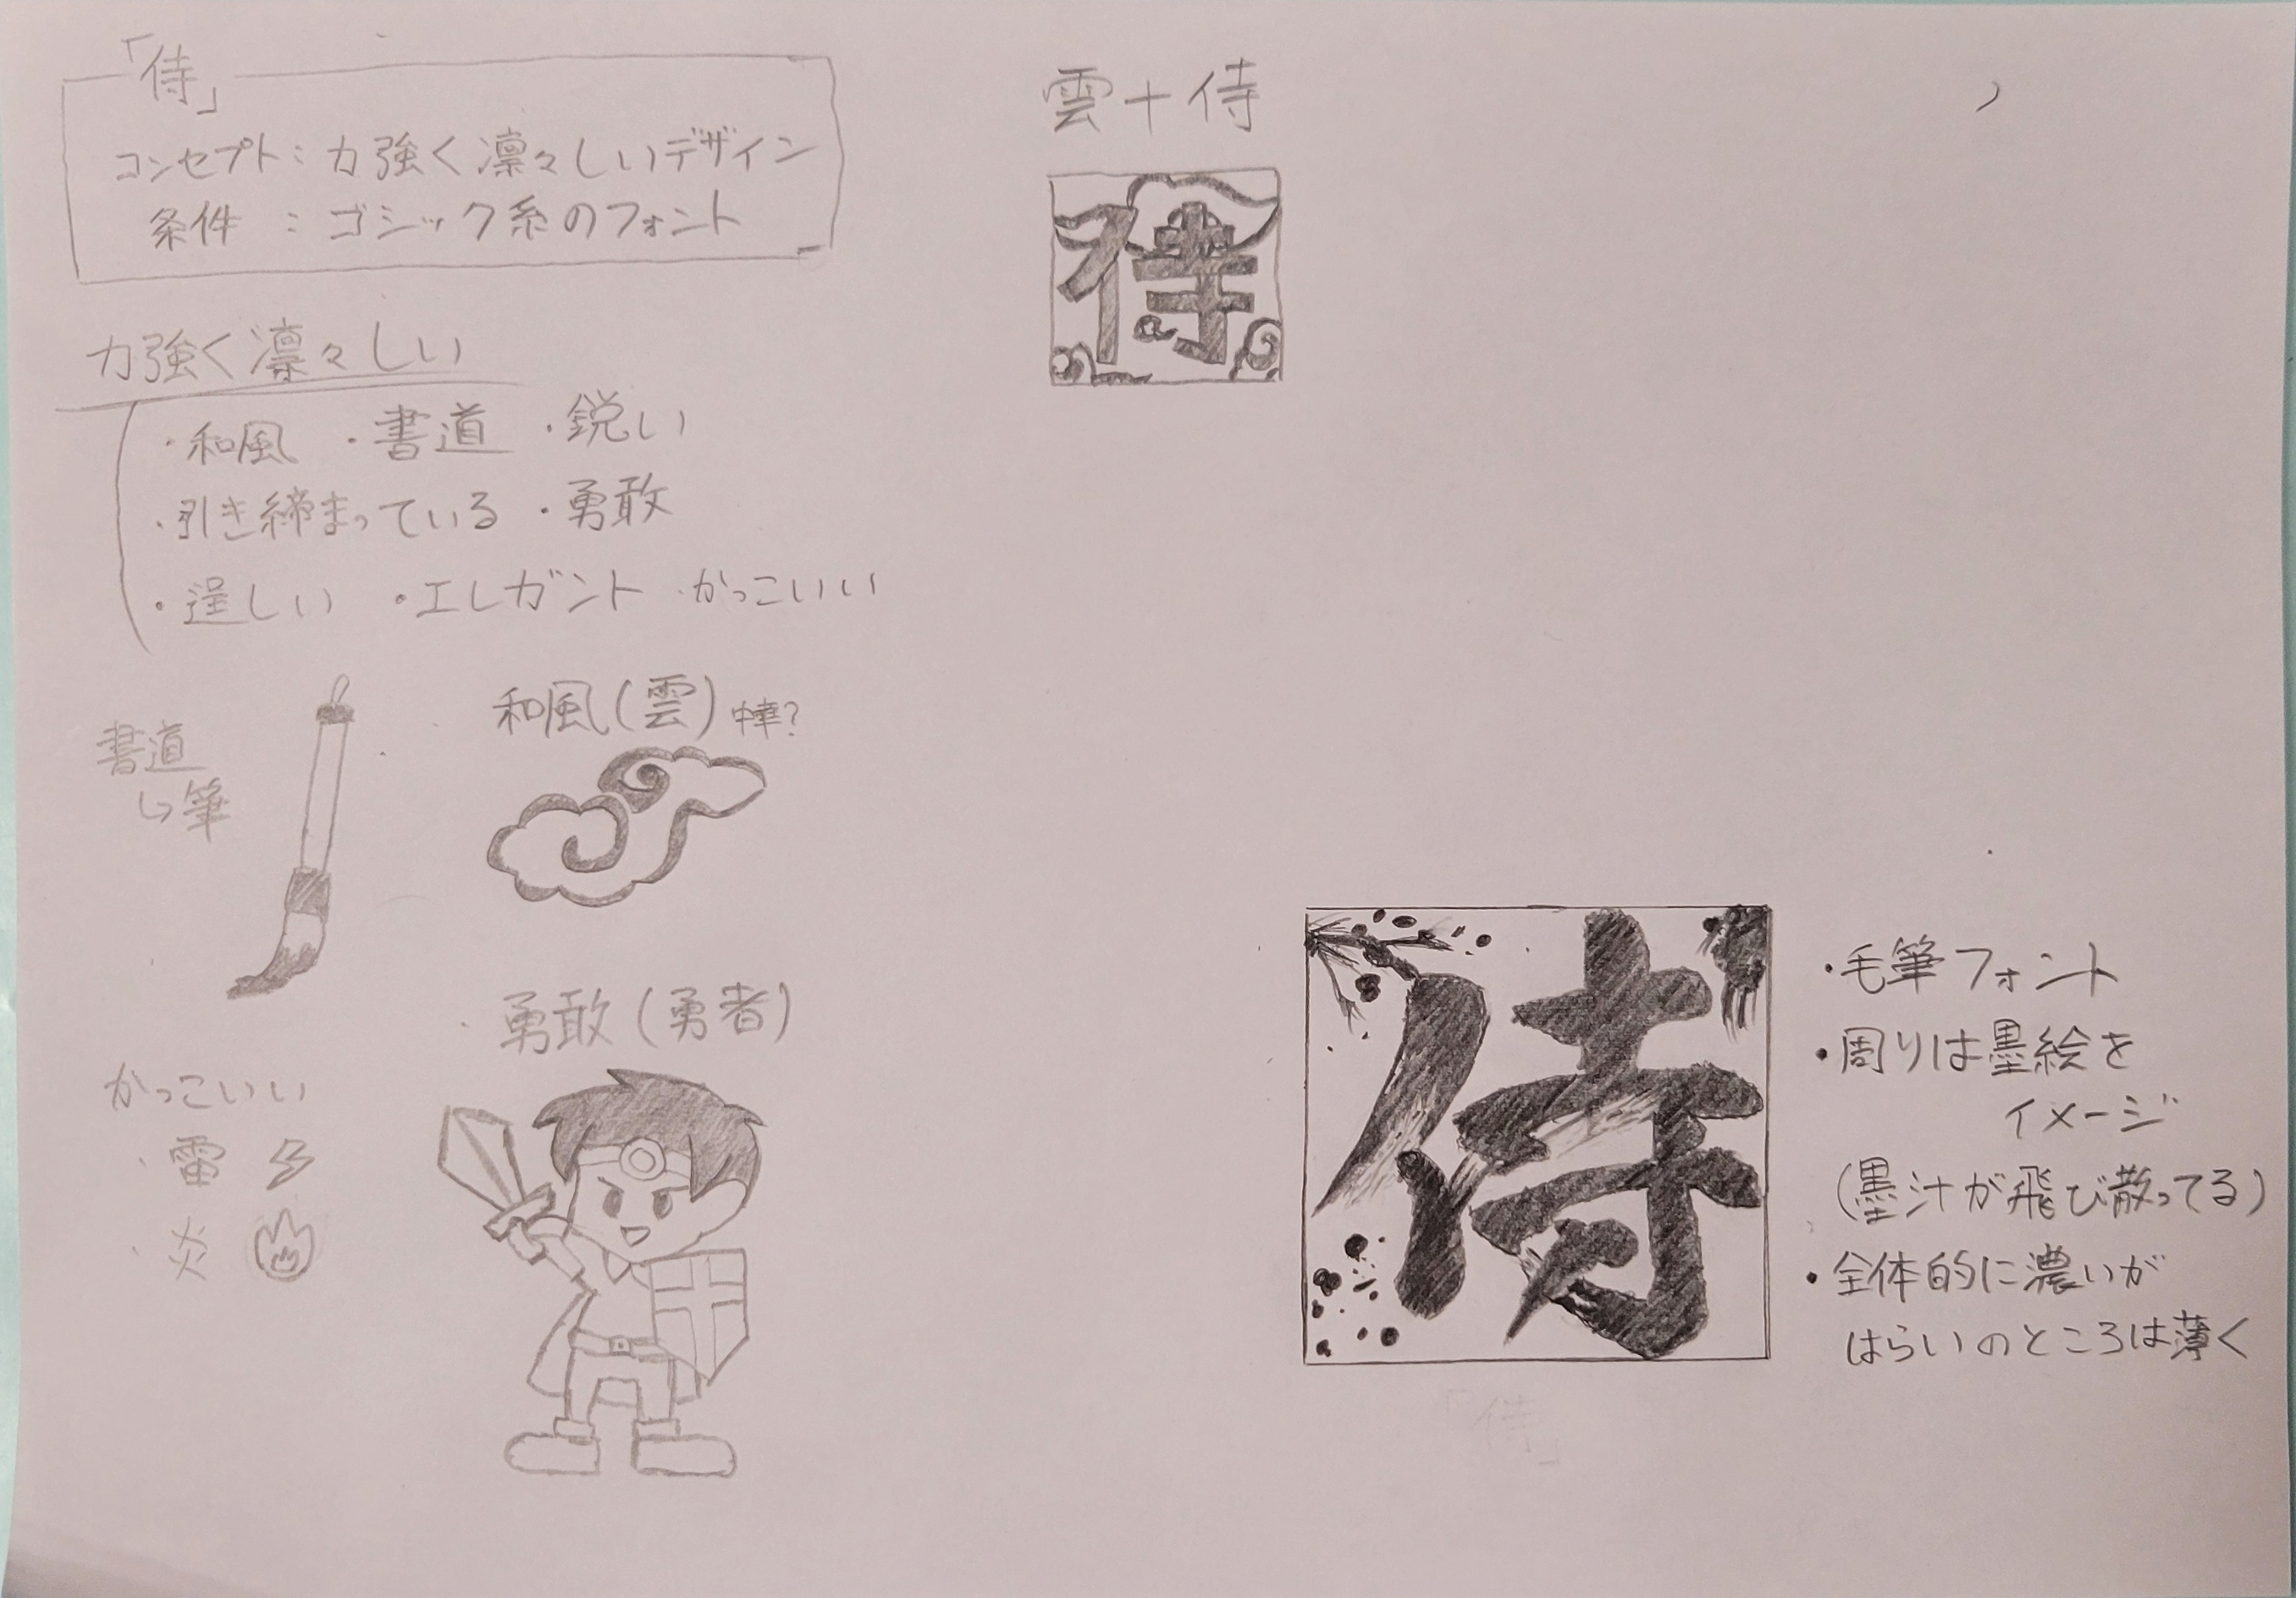 「侍」
コンセプト：力強く凛々しいデザイン
条件：ゴシック系のフォント
力強く凛々しい
・和風 ・書道 ・鋭い
・引き締まっている ・勇敢
・逞しい ・エレガント ・かっこいい
書道
↳筆
和風（雲）中華？
・勇敢（勇者）
かっこいい
・雷
・炎
雲＋侍
侍
侍
・毛筆フォント
・周りは墨絵を
イメージ
（墨汁が飛び散ってる）
・全体的に濃いが
はらいのところは薄く
「侍」